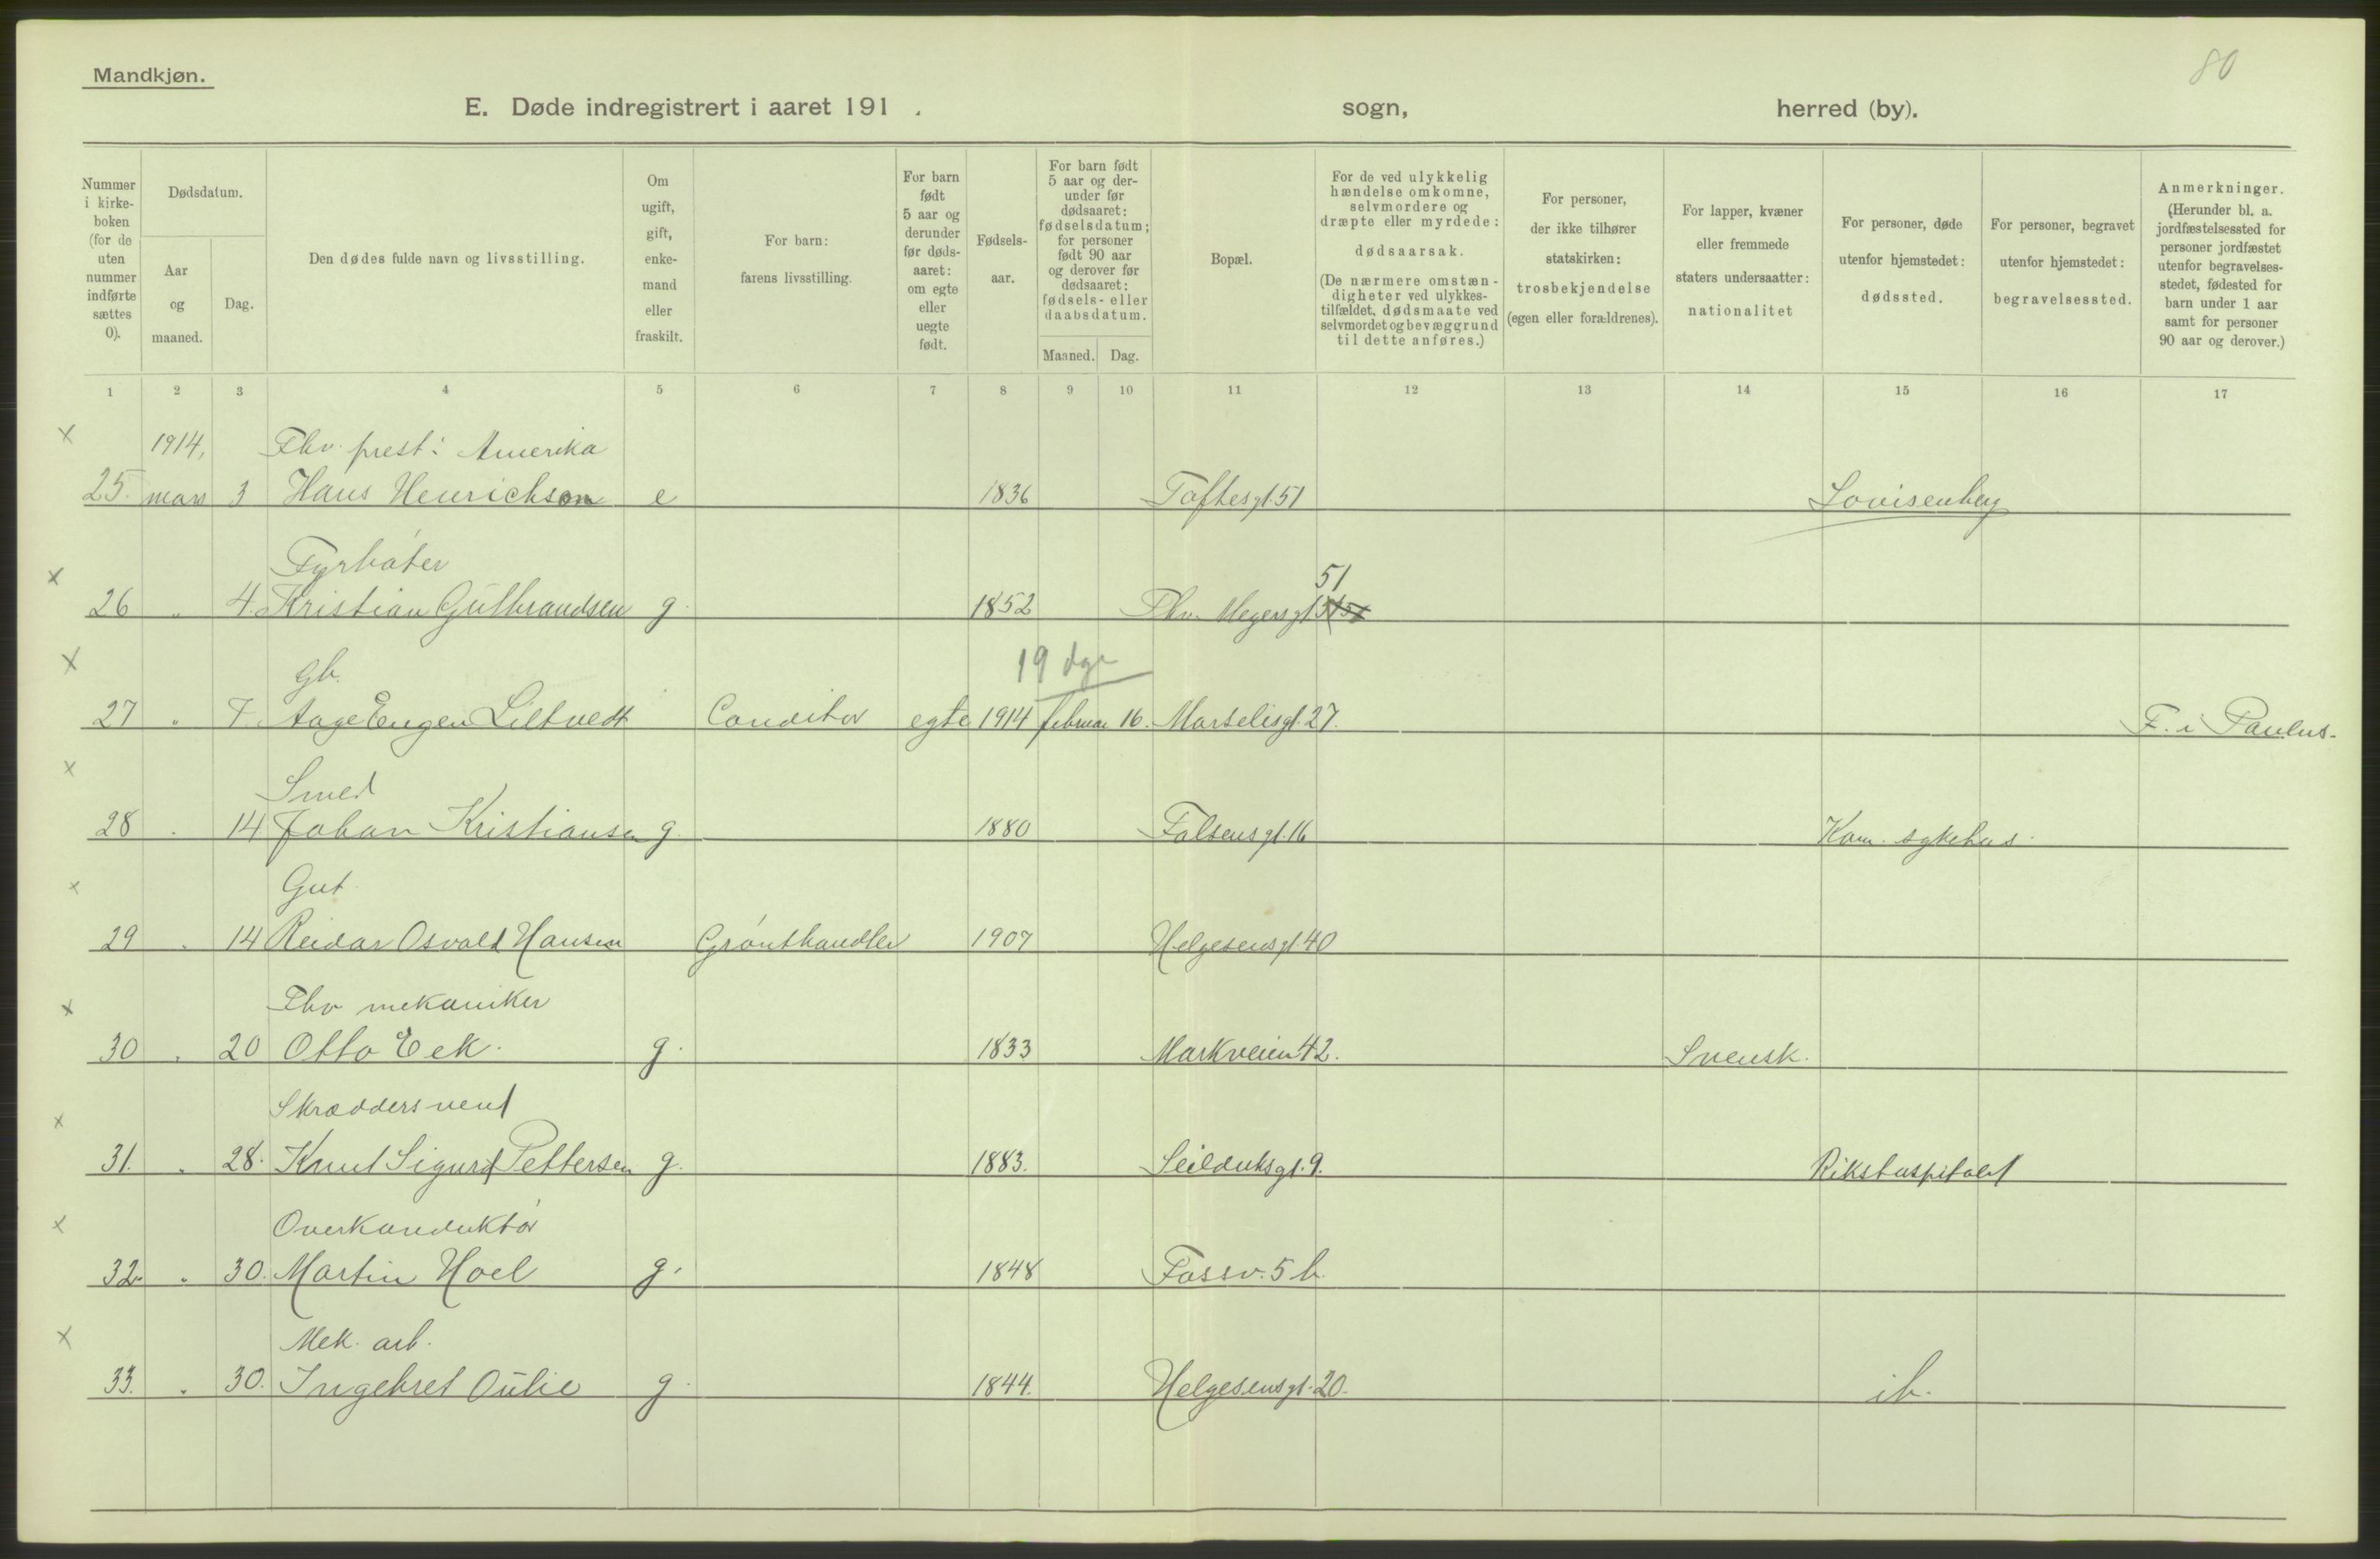 80
Mandkjøn.
E. Døde indregistrert i aaret 191 . sogn, herred (by).
Nummer i kirke-boken (for de uten nummer indførte sættes 0).
Dødsdatum.
Aar og maaned.
Dag.
Den dødes fulde navn og livsstilling.
Om ugift, gift, enke-mand eller fraskilt.
For barn: farens livsstilling.
For barn født 5 aar og derunder før døds-aaret: om egte eller uegte født.
Fødsels-aar.
For barn født 5 aar og der-under før dødsaaret: fødselsdatum; for personer født 90 aar og derover før dødsaaret: fødsels- eller daabsdatum.
Maaned. Dag.
Bopæl.
For de ved ulykkelig hændelse omkomne, selvmordere og dræpte eller myrdede: dødsaarsak. (De nærmere omstæn-digheter ved ulykkes-tilfældet, dødsmaate ved selvmordet og bevæggrund til dette anføres.)
For personer, der ikke tilhører statskirken: trosbekjendelse (egen eller forældrenes).
For lapper, kvæner eller fremmede staters undersaatter: nationalitet
For personer, døde utenfor hjemstedet: dødssted.
For personer, begravet utenfor hjemstedet: begravelsessted.
Anmerkninger. (Herunder bl. a. jordfæstelsessted for personer jordfæstet utenfor begravelses-stedet, fødested for barn under 1 aar samt for personer 90 aar og derover.)
1 2 3 4 5 6 7 8 9 10 11 12 13 14 15 16 17
x 1914, Fhv. prest i Amerika
25. mars 3 Hans Henrichson e 1836 Toftesgt. 51 Lovisenberg
x Fyrbøter 51
26 " 4. Kristian Gulbrandsen g. 1852 Thv. Meyersgt
x gb. 19 dgr
27 " 7. Aage Eugen Liltvedt Conditor egte 1914 februar 16. Marselisgt. 27. F. i Paulus.
x Smed
28 " 14 Johan Kristiansen g. 1880 Falsensgt. 16 Kom. sykehus.
x Gut
29 " 14 Reidar Osvald Hansen Grønthandler 1907 Helgesensgt 40
x Fhv mekaniker
30 " 20 Otto Eek. g. 1833 Markveien 42. Svensk.
x Skræddersvend
31. " 28. Knut Sigurd Pettersen g. 1883. Seilduksgt. 9. Rikshospitalet
x Overkonduktør
32. " 30. Martin Hoel g. 1848 Fossv. 5 b.
x Mek. arb.
33. " 30. Ingebret Oulie g. 1844. Helgesensgt. 20. ib.